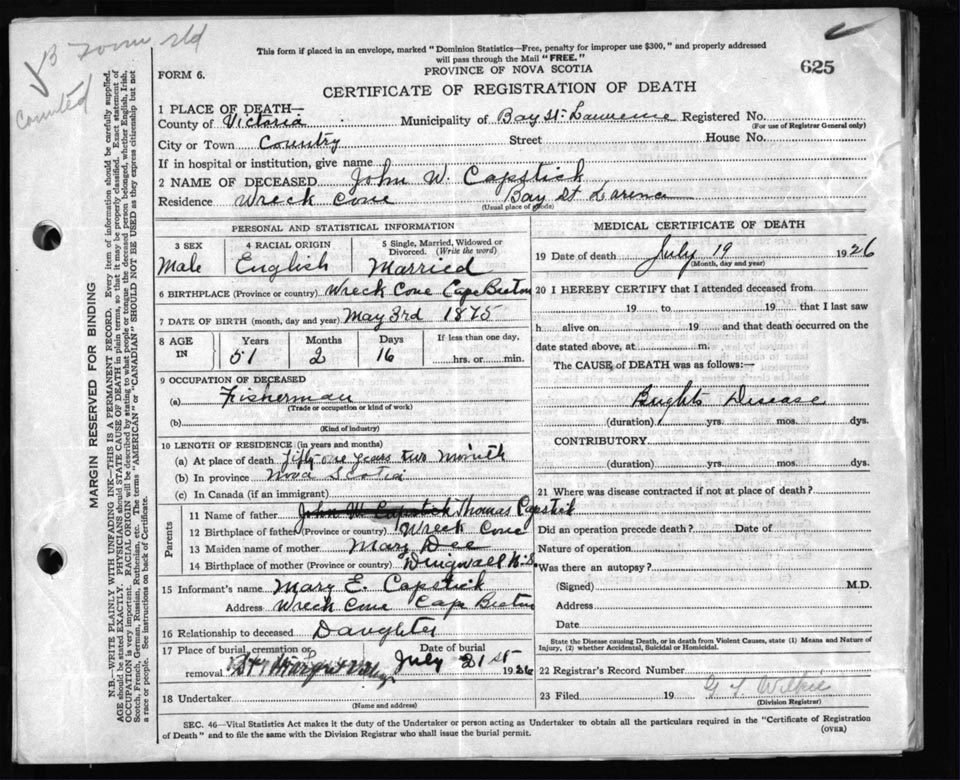 B
counted
This form if placed in an envelope, marked "Dominion Statistics—Free, penalty for improper use $300," and properly addressed
will pass through the Mail "FREE."
PROVINCE OF NOVA SCOTIA
625
FORM 6.
CERTIFICATE OF REGISTRATION OF DEATH
1 PLACE OF DEATH—
County of Victoria Municipality of Bay St. Lawrence Registered No.
(For use of Registrar General only)
City or Town Country Street House No.
If in hospital or institution, give name
2 NAME OF DECEASED John W. Capstick
Residence Wreck Cove Bay St Larence
(Usual place of abode)
PERSONAL AND STATISTICAL INFORMATION
3 SEX 4 RACIAL ORIGIN 5 Single, Married, Widowed or
Divorced. (Write the word)
Male English Married
6 BIRTHPLACE (Province or country) Wreck Cove Cape Breton
7 DATE OF BIRTH (month, day and year) May 3rd 1875
8 AGE IN Years Months Days If less than one day,
51 2 16 hrs. or min.
9 OCCUPATION OF DECEASED
(a) Fisherman
(Trade or occupation or kind of work)
(b)
(Kind of industry)
10 LENGTH OF RESIDENCE (in years and months)
(a) At place of death fifty one years two month
(b) In province Nova Scotia
(c) In Canada (if an immigrant)
Parents
11 Name of father John W Capstick Thomas Capstick
12 Birthplace of father (Province or country) Wreck Cove
13 Maiden name of mother Mary Dee
14 Birthplace of mother (Province or country) Dingwall N.S.
15 Informant's name Mary E. Capstick
Address Wreck Cove Cape Breton
16 Relationship to deceased Daughter
17 Place of burial, cremation or removal Date of burial
July 21st 1926
18 Undertaker
(Name and address)
MEDICAL CERTIFICATE OF DEATH
19 Date of death July 19 1926
(Month, day and year)
20 I HEREBY CERTIFY that I attended deceased from
19 to 19 that I last saw
h alive on 19 and that death occurred on the
date stated above, at m.
The CAUSE of DEATH was as follows:—
Brights Disease
(duration) yrs. mos. dys.
CONTRIBUTORY
(duration) yrs. mos. dys.
21 Where was disease contracted if not at place of death?
Did an operation precede death? Date of
Nature of operation
Was there an autopsy?
(Signed) M.D.
Address
Date
State the Disease causing Death, or in death from Violent Causes, state (1) Means and Nature of
Injury, (2) whether Accidental, Suicidal or Homicidal.
22 Registrar's Record Number
23 Filed 19 Wilkie
(Division Registrar)
SEC. 46—Vital Statistics Act makes it the duty of the Undertaker or person acting as Undertaker to obtain all the particulars required in the "Certificate of Registration
of Death" and to file the same with the Division Registrar who shall issue the burial permit.
(OVER)
MARGIN RESERVED FOR BINDING
N.B.—WRITE PLAINLY WITH UNFADING INK—THIS IS A PERMANENT RECORD. Every item of information should be carefully supplied.
AGE should be stated EXACTLY. PHYSICIANS should STATE CAUSE OF DEATH in plain terms, so that it may be properly classified. Exact statement of
OCCUPATION is very important. RACIAL ORIGIN will be described by stating to what people or tongue the deceased person belonged, whether English, Irish,
Scotch, French, German, Russian, Ruthenian, etc. The terms "AMERICAN" or "CANADIAN" SHOULD NOT BE USED as they express citizenship but not
a race or people. See instructions on back of Certificate.